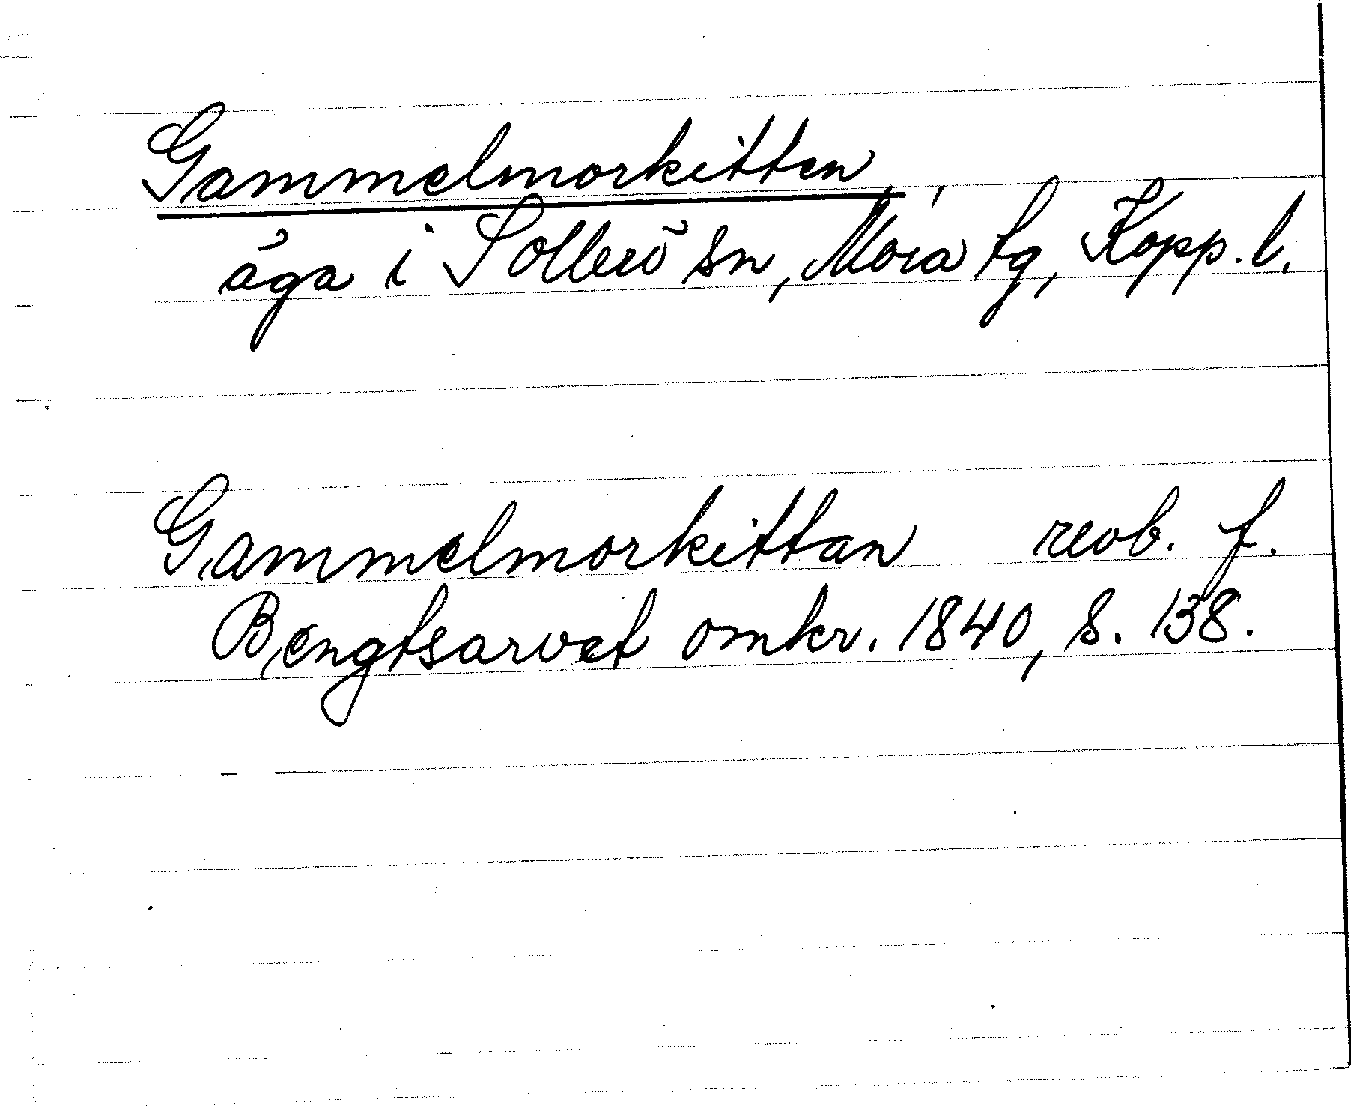 Gammelmorkitten,
äga i Sollerö sn, Mora tg, Kopp. l.
Gammelmorkittan revb. f.
Bengtsarvet omkr. 1840, s. 138.